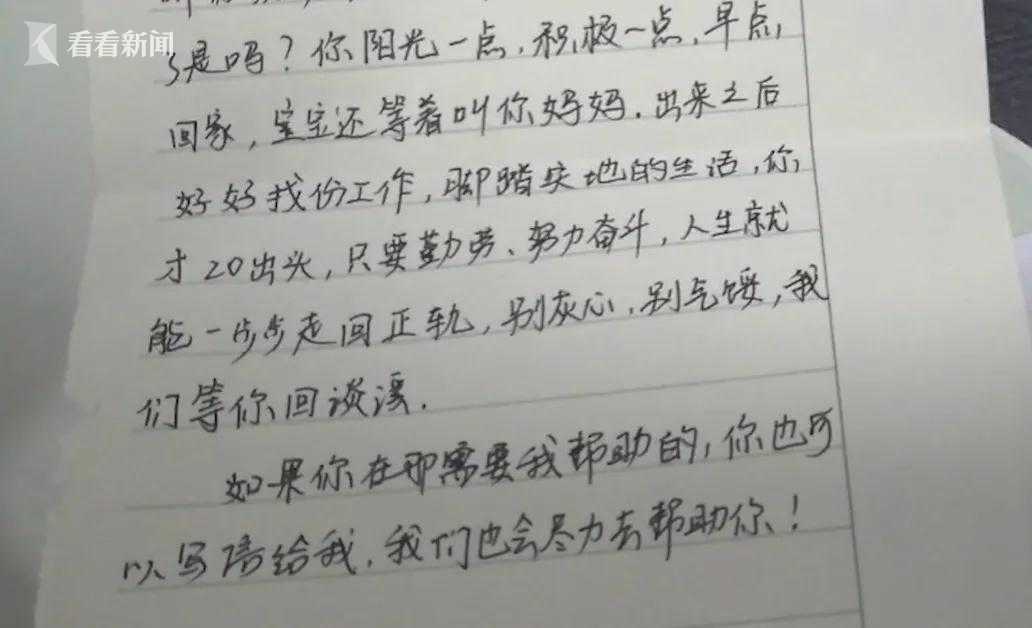 看看新闻
了是吗？你阳光一点，积极一点，早点
回家，宝宝还等着叫你妈妈．出来之后
好好找份工作，脚踏实地的生活，你
才20出头，只要勤劳、努力奋斗，人生就
能一步步走回正轨，别灰心，别气馁，我
们等你回谈溪．
如果你在那需要我帮助的，你也可
以写信给我，我们也会尽力去帮助你！